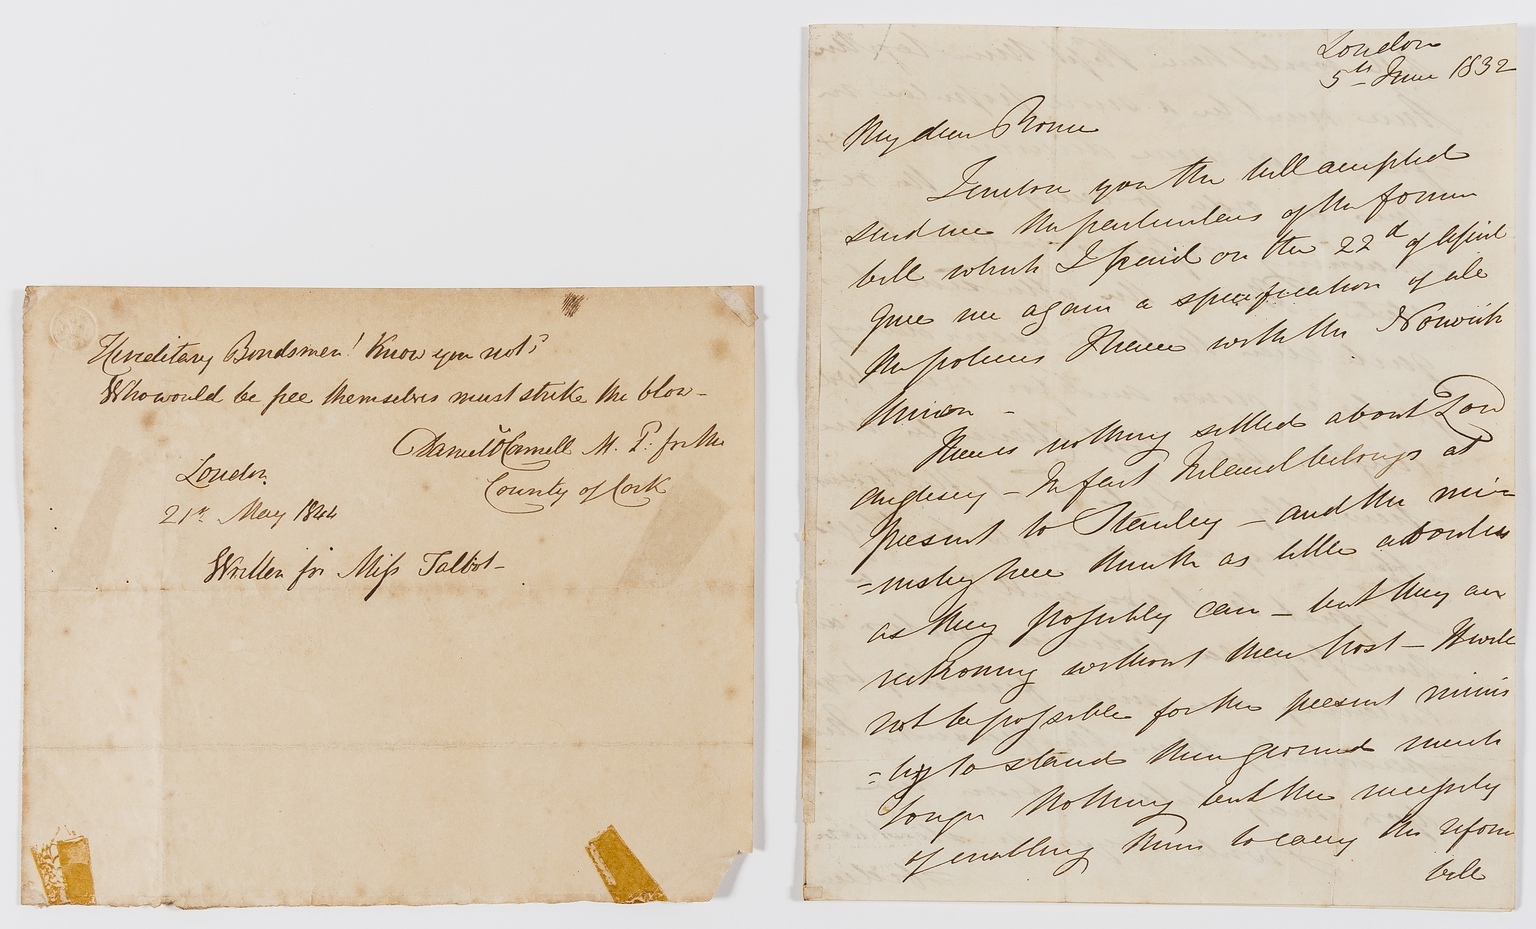 Hereditary Bondsmen! Know you not?
Who would be free themselves must strike the blow –
Daniel O'Connell M. P. for the
County of Cork
London
21st May 1844
Written for Miss Talbot –
London
5th June 1832
My dear
I enclose you the bill accepted
send me the particulars of the former
bill which I paid on the 22d of
Give me again a specification of all
the policies I have with the Norwich
Union –
There is nothing settled about Lord
Anglesey – In fact Ireland belongs at
present to Stanley – and the min=
=istry here think as little about us
as they possibly can – but they are
reckoning without their host – It will
not be possible for the present minis
=try to stand their ground much
longer Nothing but the necessity
of enabling them to carry the reform
bill